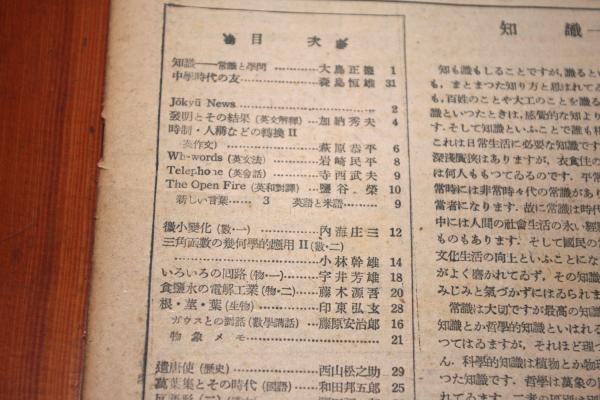 目次
知識——常識と學問 大島正徳 1
中學時代の友 森島恒雄 31
Jōkyū News 2
發明とその結果 (英文解釋) 加納秀夫 4
時制・人稱などの轉換 II
(英作文) 萩原恭平 6
Wh-words (英文法) 岩崎民平 8
Telephone (英會話) 寺西武夫 9
The Open Fire (英和對譯) 鹽谷榮 10
新しい言葉 3 英語と米語 9
微小變化 (數・一) 內海庄三 12
三角函數の幾何學的應用 II (數・二)
小林幹雄 14
いろいろの回路 (物・一) 宇井芳雄 18
食鹽水の電解工業 (物・二) 藤木源吾 20
根・莖・葉 (生物) 印東弘玄 28
ガウスとの對話 (數學講話) 藤原安治郎 16
物象メモ 21
遣唐使 (歷史) 西山松之助 29
萬葉集とその時代 (國語) 和田邦五郎 25
知識—
知も識もしることですが、識ると
も、まとまつた知り方と思はれてゐ
も、百姓のことや大工のことを識る
識といつたときは、感覺的な知より
す。そして知識といふことで誰も
これは日常生活に必要な知識です
深淺廣狹はありますが、衣食住の
は何人ももつてゐるのです。平常
常時には非常時々代の常識があり
當者になります。故に常識は時代
中には人間の社會生活の永い經驗
ものもあります。そして國民の
文化生活の向上といふことにな
がよく磨かれてゐず、その知識
みじみと氣づかずにはゐられま
常識は大切ですが最高の知識
知識とか哲學的知識といはれる
つてはゐますが、それほど現つ
ん。科學的知識は植物とか物理
つた知識です。哲學は萬象の